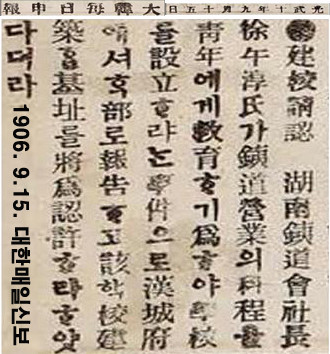 光武十年九月十五日
大韓每日申報
●建校請認 湖南鐵道會社長
徐午淳氏가鐵道營業의科程을
靑年에게敎育ᄒᆞ기爲ᄒᆞ야學校
를設立ᄒᆞ랴는事件으로漢城府
에셔학部로報告ᄒᆞ고該학校建
築ᄒᆞᆯ基址를將爲認許ᄒᆞ라ᄒᆞ얏
다더라
1906. 9.15. 대한매일신보